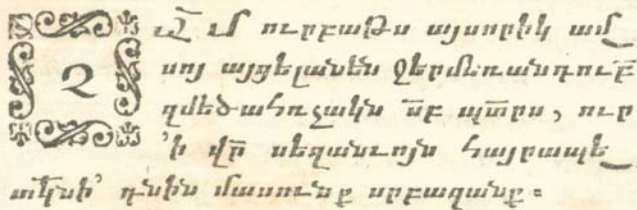 ԶԱ՟մ ուրբաթս այսորիկ ամ֊
սոյ այցելանեն ջերմեռանդուբ՟
զմեծահռչակս ս՟բ պտ՟րս, ուր
՚ի վր՟ սեղանւոյն հայրապե֊
տկ՟նի՛ դնին մասունք սրբազանք ։